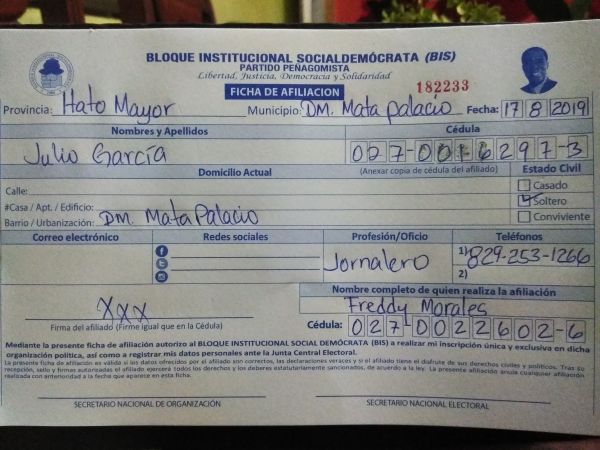 BLOQUE INSTITUCIONAL SOCIALDEMÓCRATA (BIS)
PARTIDO PEÑAGOMISTA
Libertad, Justicia, Democracia y Solidaridad
FICHA DE AFILIACION
182233
Provincia: Hato Mayor Municipio: DM. Mata palacio Fecha: 17 8 2019
Nombres y Apellidos Cédula
Julio García 027-0016297-3
Domicilio Actual (Anexar copia de cédula del afiliado) Estado Civil
Calle: Casado
#Casa / Apt. / Edificio: Soltero
Barrio / Urbanización: DM. Mata Palacio Conviviente
Correo electrónico Redes sociales Profesión/Oficio Teléfonos
Jornalero 1) 829-253-1266
2)
Nombre completo de quien realiza la afiliación
XXX Freddy Morales
Firma del afiliado (Firme igual que en la Cédula) Cédula: 027 0022602-6
Mediante la presente ficha de afiliación autorizo al BLOQUE INSTITUCIONAL SOCIAL DEMÓCRATA (BIS) a realizar mi inscripción única y exclusiva en dicha
organización política, así como a registrar mis datos personales ante la Junta Central Electoral.
La afiliación es válida si los datos ofrecidos por el afiliado son correctos, las declaraciones veraces y si el afiliado tiene el disfrute de sus derechos civiles y políticos. Tras su
recepción, sello y firmas autorizadas el afiliado ejercerá todos los derechos y los deberes estatutariamente sancionados, de acuerdo a la ley. La presente afiliación anula cualquier afiliación
realizada con anterioridad a la fecha que aparece en esta ficha.
SECRETARIO NACIONAL DE ORGANIZACIÓN SECRETARIO NACIONAL ELECTORAL